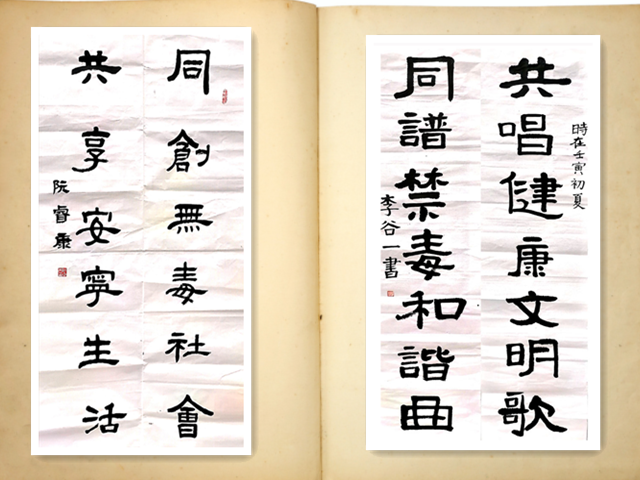 同創無毒社會
共享安寧生活
阮睿康
時在壬寅初夏
共唱健康文明歌
同譜禁毒和諧曲
李谷一書